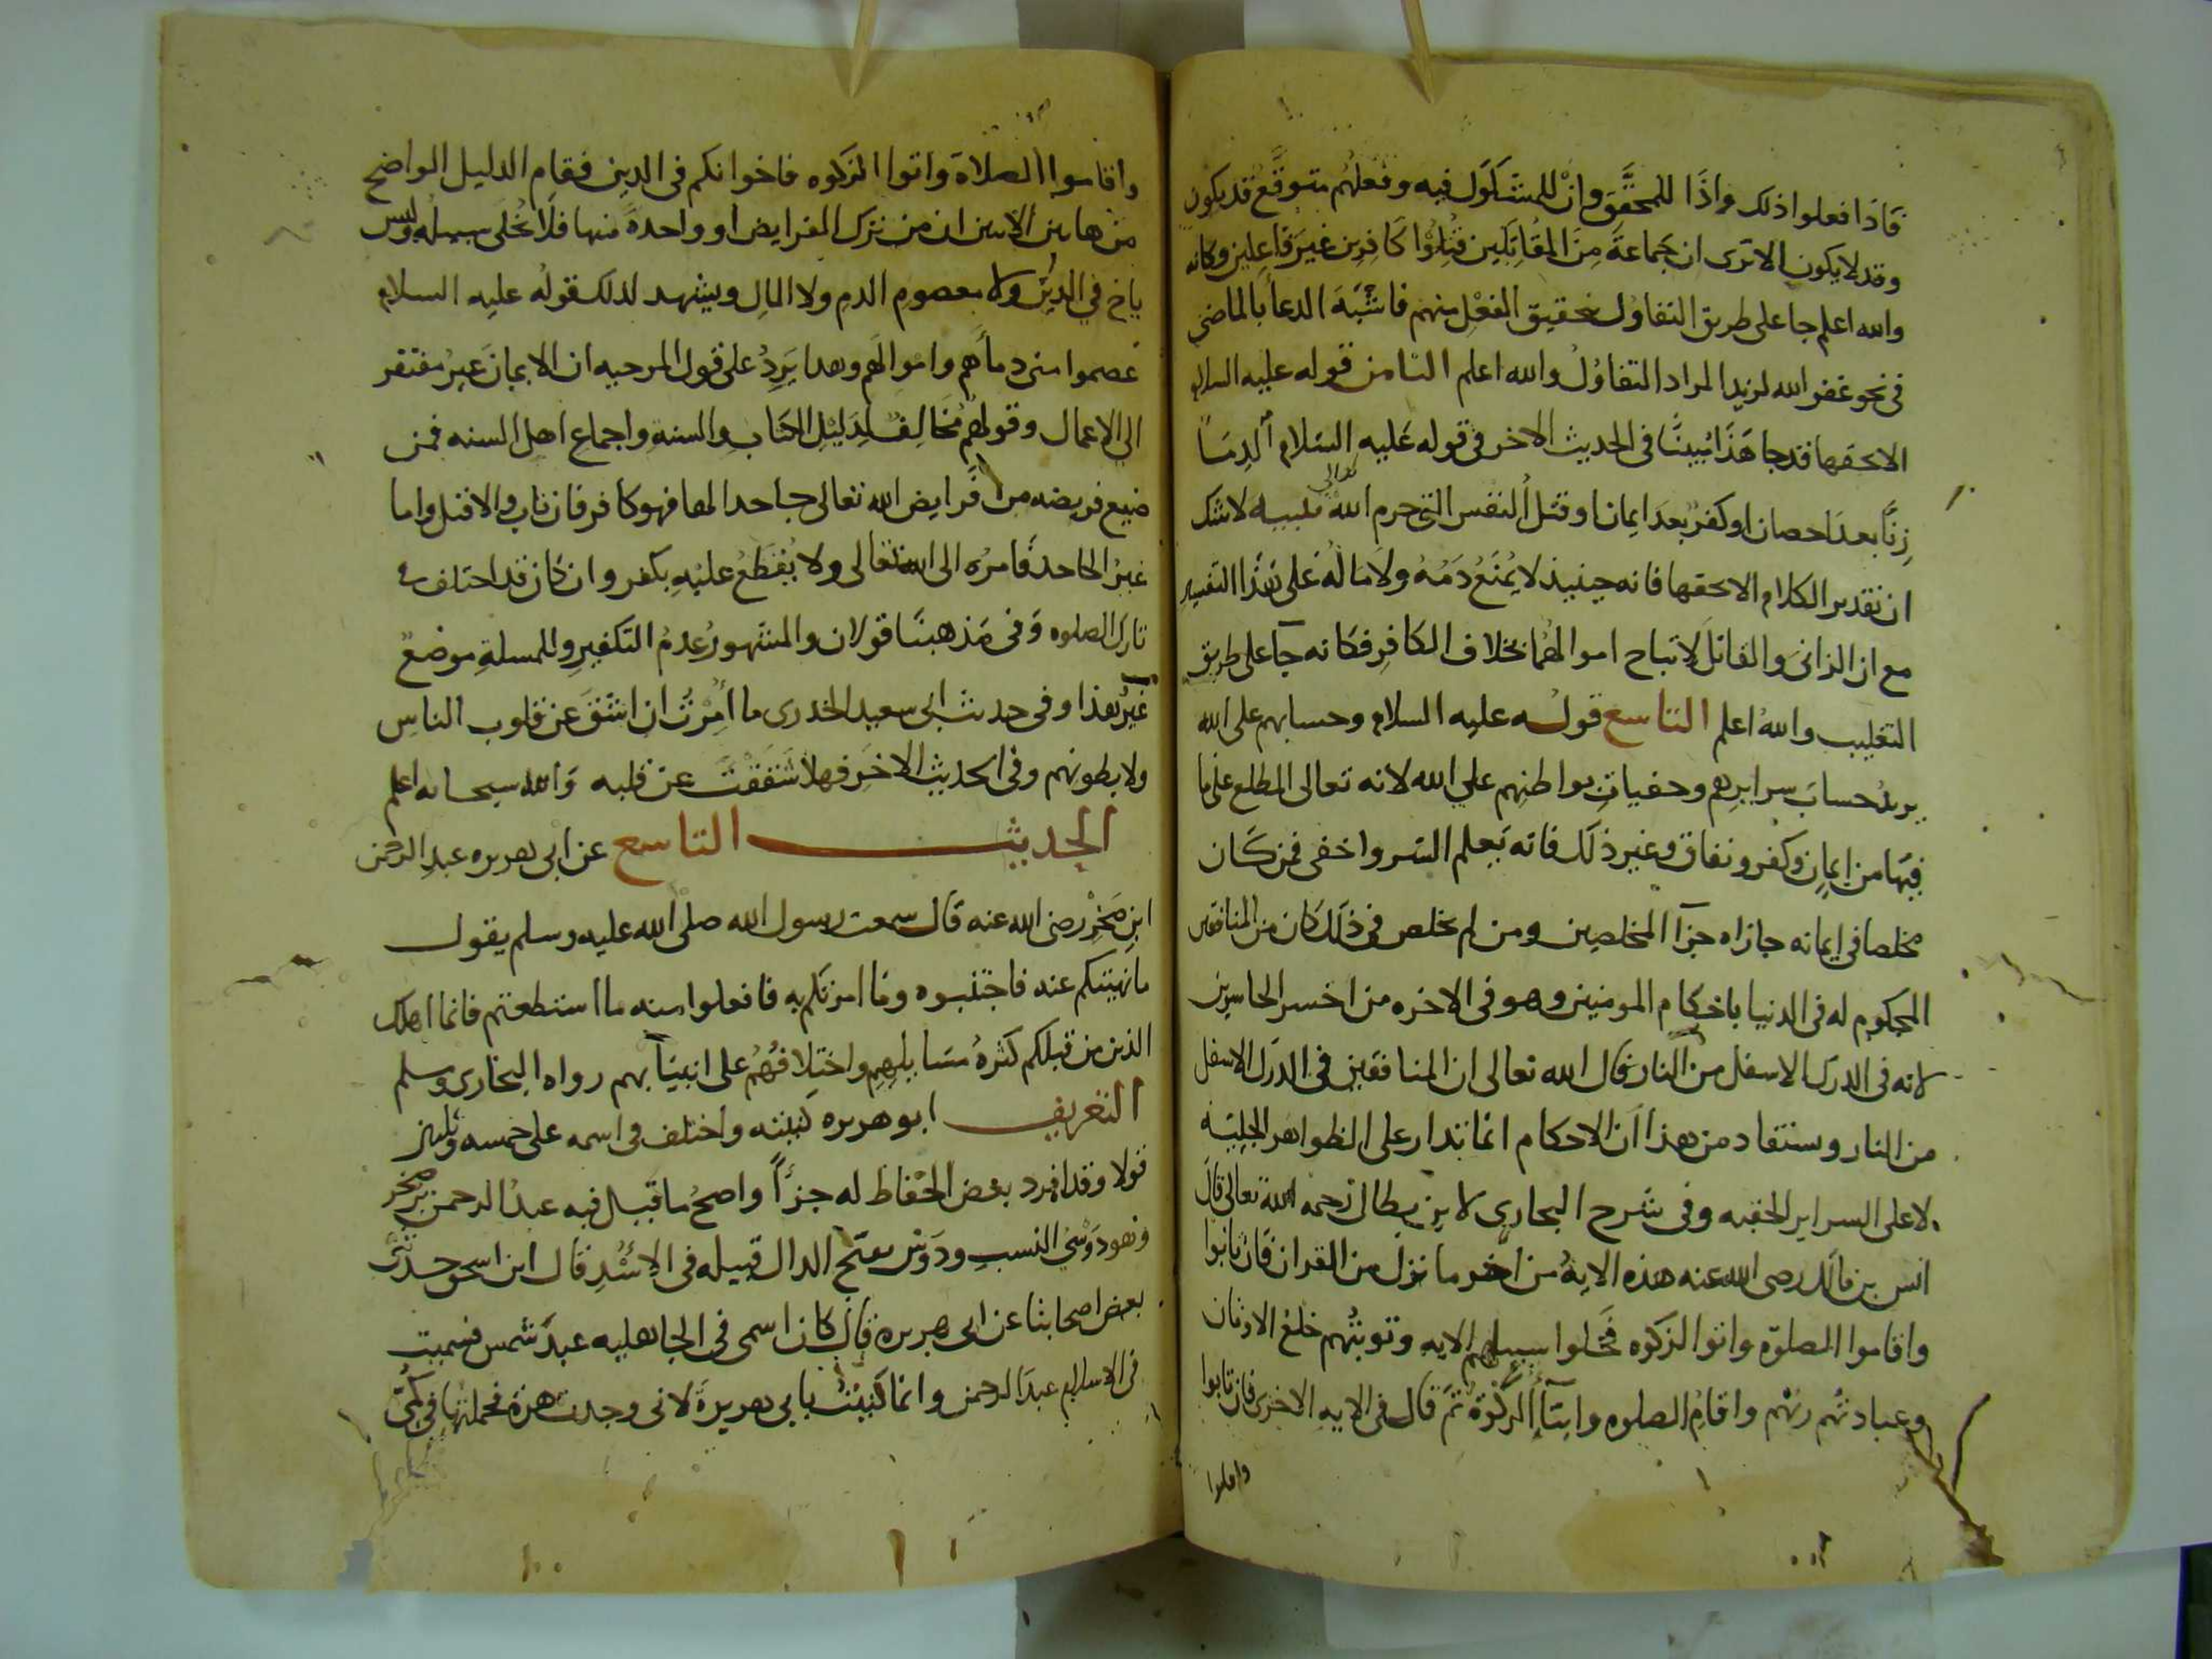 فاذا فعلوا ذلك واذا للمحقق وان للمشكوك فيه وفعلهم متوقع قد يكون
وقد لا يكون الا ترى ان جماعة من المقاتلين قتلوا كافرين غير فاعلين وكانه
والله اعلم جا على طريق التفاول بتحقيق الفعل منهم فاشبه الدعا بالماضي
في نحو غفر الله لزيد المراد التفاول والله اعلم الثامن قوله عليه السلام
الا بحقها قد جا هذا مبينا في الحديث الاخر في قوله عليه السلام
زنا بعد احصان او كفر بعد ايمان او قتل النفس التي حرم الله تنبيه لا شك
ان تقدير الكلام الا بحقها فانه حينيذ لا يمنع دمه ولا ماله على هذا التفسير
مع ان الزاني والقاتل لا تباح اموالهما بخلاف الكافر فكانه جا على طريق
التغليب والله اعلم التاسع قوله عليه السلام وحسابهم على الله
يريد حساب سرايرهم وخفيات بواطنهم على الله لانه تعالى المطلع على ما
فيها من ايمان وكفر ونفاق وغير ذلك فانه يعلم السر واخفى فمن كان
مخلصا في ايمانه جازاه جزا المخلصين ومن لم يخلص في ذلك كان من المنافقين
المحكوم له في الدنيا باحكام المومنين وهو في الاخره من اخسر الخاسرين
لانه في الدرك الاسفل من النار قال الله تعالى ان المنافقين في الدرك الاسفل
من النار وستفاد من هذا ان الاحكام انما تدار على الظواهر الجليه
لا على السراير الخفيه وفي شرح البخاري لابن بطال رحمه الله تعالى قال
انس بن مالك رضى الله عنه هذه الايه من اخر ما نزل من القران فان تابوا
واقاموا الصلوة واتوا الزكوه فخلوا سبيلهم الايه وتوبتهم خلع الاوثان
وعبادتهم ربهم واقام الصلوه وايتا الزكوة ثم قال في الايه الاخرى فان تابوا
واقاموا
واقاموا الصلاة واتوا الزكوه فاخوانكم في الدين فقام الدليل الواضح
من هاتين الايتين ان من ترك الفرايض او واحدة منها فلا يخلى سبيله وليس
باخ في الدين ولا معصوم الدم ولا المال ويشهد لذلك قوله عليه السلام
عصموا منى دماهم واموالهم وهذا يرد على قول المرجيه ان الايمان غير مفتقر
الى الاعمال وقولهم مخالف لدليل الكتاب والسنه واجماع اهل السنه فمن
ضيع فريضه من فرايض الله تعالى جاحدا لها فهو كافر فان تاب والا قتل واما
غير الجاحد فامره الى الله تعالى ولا يقطع عليه بكفر وان كان قد اختلف في
تارك الصلوه وفى مذهبنا قولان والمشهور عدم التكفير وللمسلة موضع
غير هذا وفى حديث ابى سعيد الخدرى ما امرت ان اشق عن قلوب الناس
ولا بطونهم وفى الحديث الاخر فهلا شققت عن قلبه والله سبحانه اعلم
الحديث التاسع عن ابى هريره عبد الرحمن
ابن صخر رضى الله عنه قال سمعت رسول الله صلى الله عليه وسلم يقول
ما نهيتكم عنه فاجتنبوه وما امرتكم به فافعلوا منه ما استطعتم فانما اهلك
الذين من قبلكم كثرة مسايلهم واختلافهم على انبيايهم رواه البخارى ومسلم
التعريف ابو هريره كنيته واختلف في اسمه على خمسه وثلاثين
قولا وقد افرد بعض الحفاظ له جزأ واصح ما قيل فيه عبد الرحمن بن صخر
وهو دوسي النسب ودوس بفتح الدال قبيله في الاسد قال ابن اسحق حدثنى
بعض اصحابنا عن ابى هريرة قال كان اسمى في الجاهليه عبد شمس فسميت
فى الاسلام عبد الرحمن وانما كنيت بابى هريرة لانى وجدت هرة فحملتها في كمى